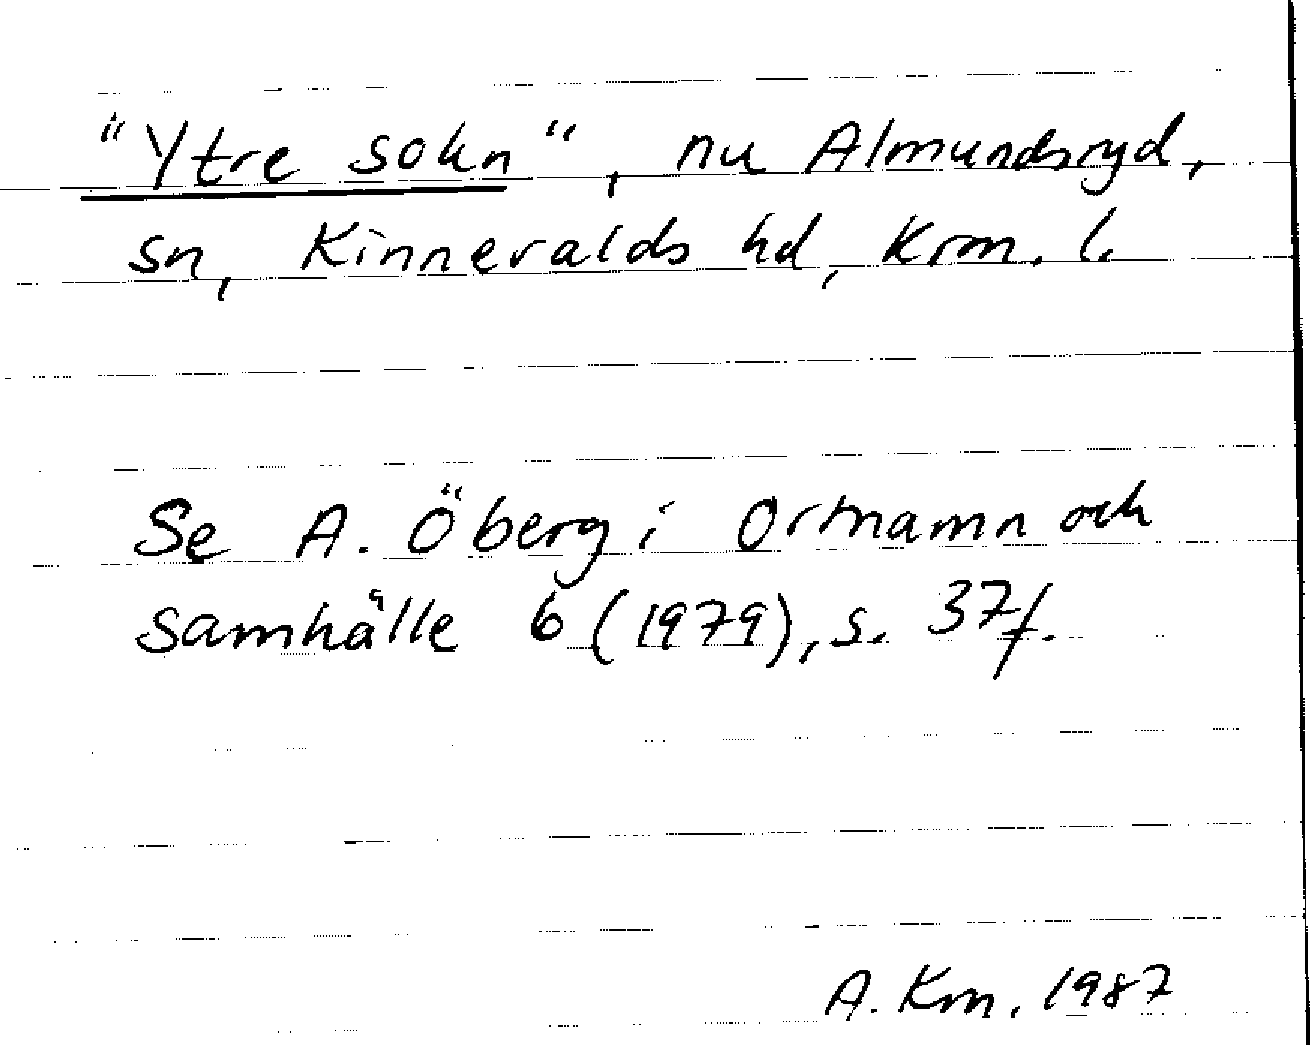 "Ytre sokn", nu Almundsryd,
sn, Kinnevalds hd, Krm. l.
Se A. Öberg i Ortnamn och
samhälle 6 (1979), s. 37f.
A. Krn. 1987